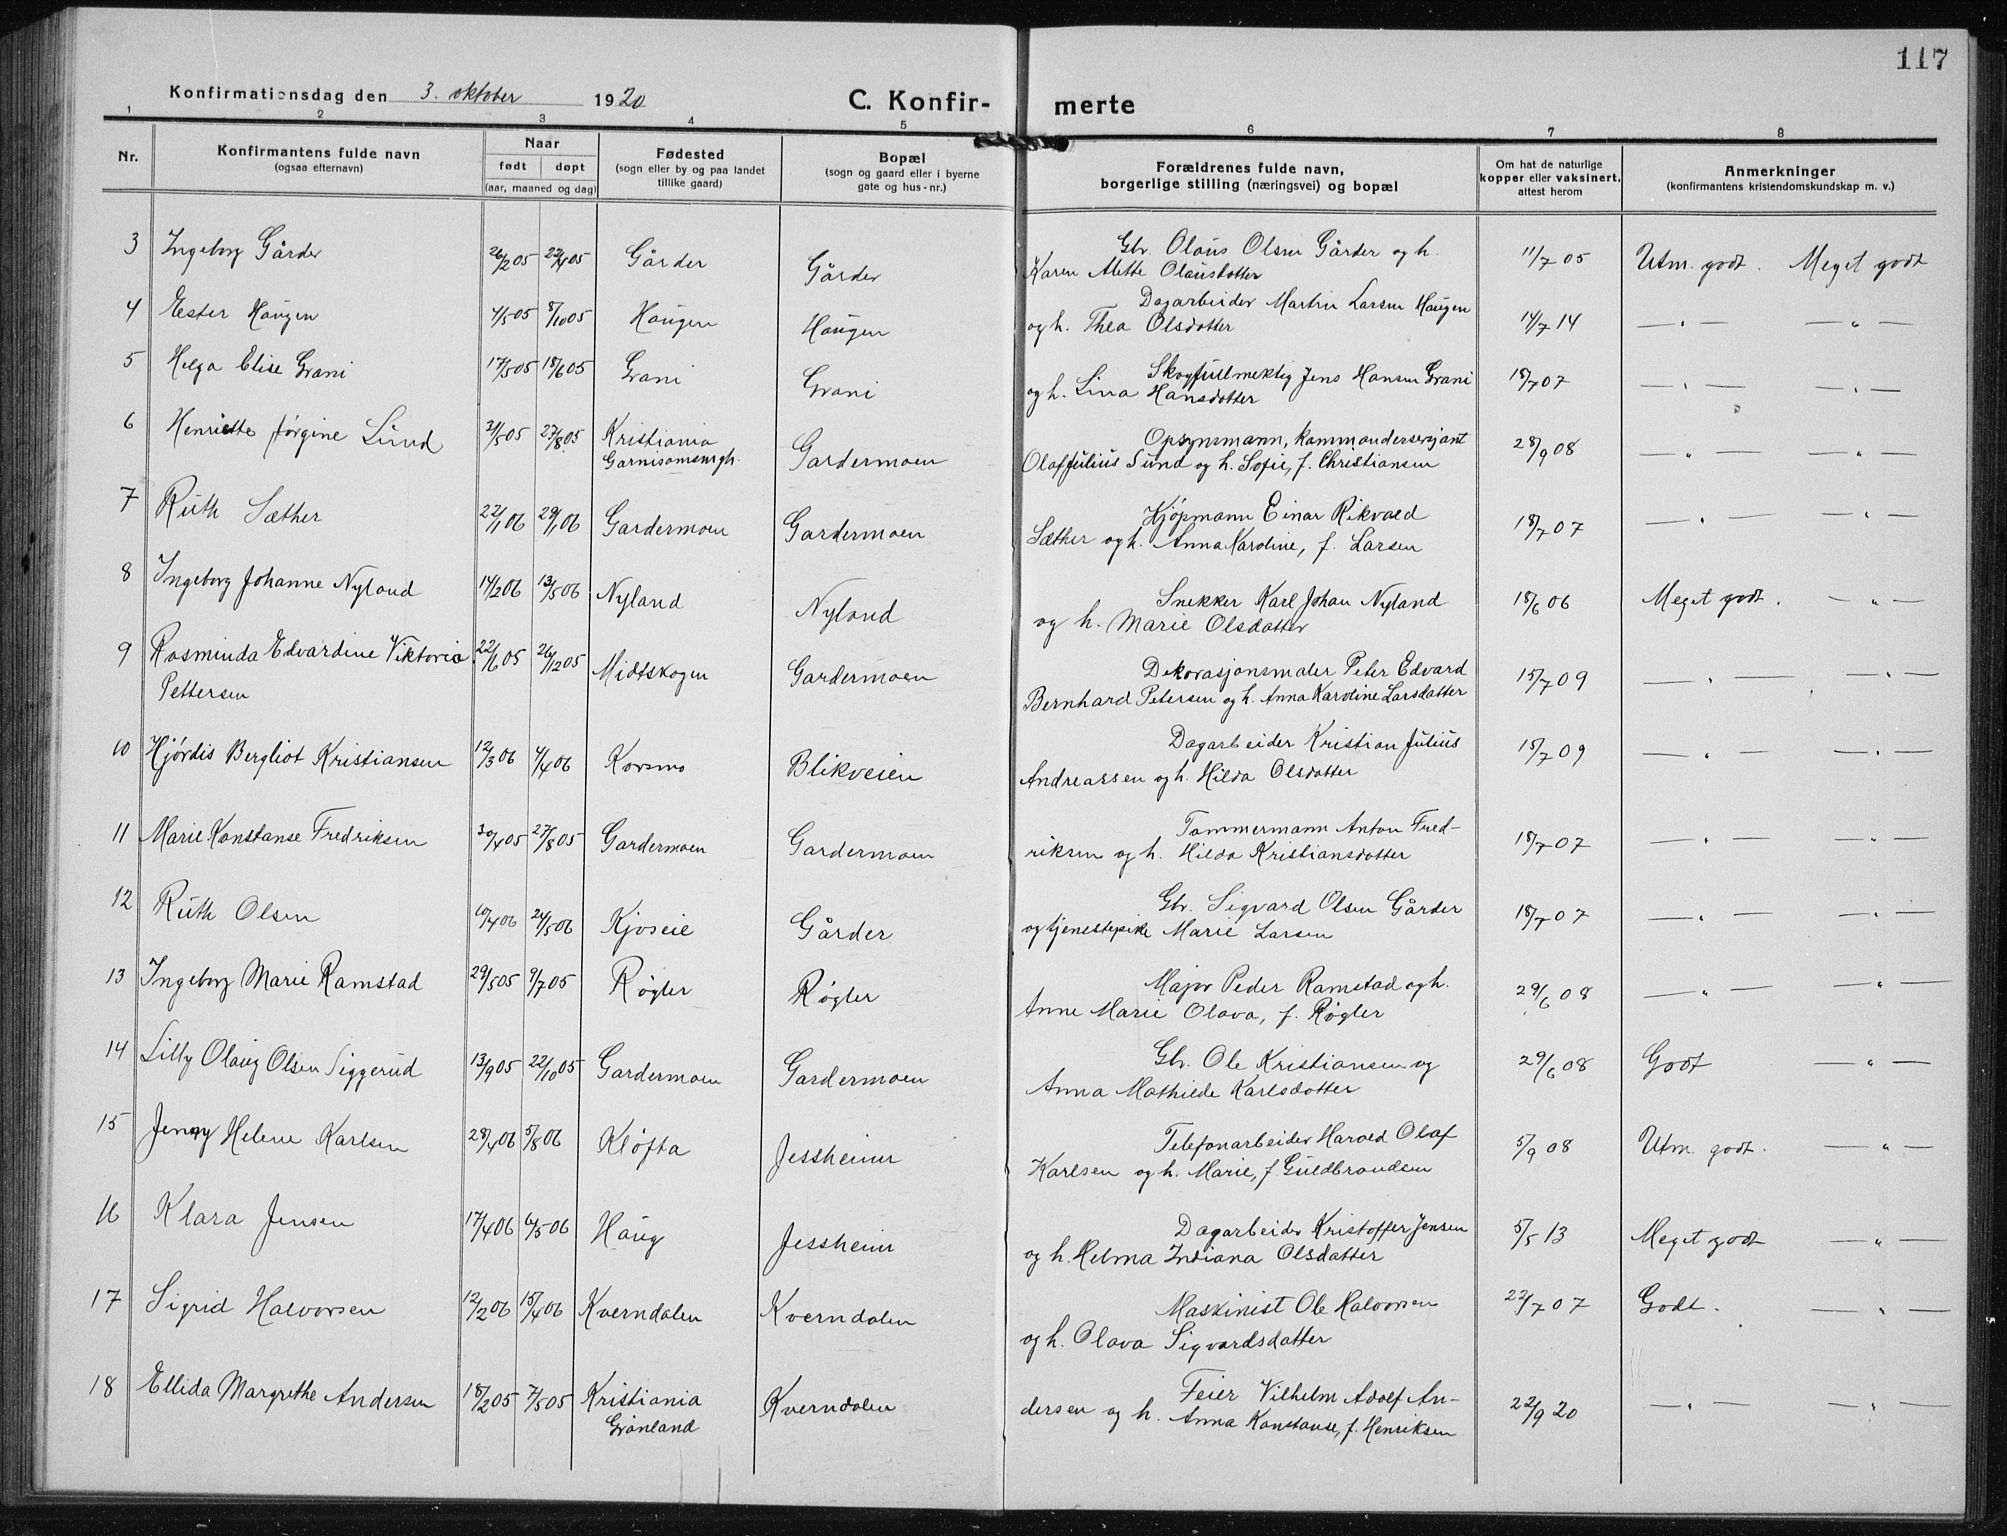 117
Konfirmationsdag den 3. oktober 1920
C. Konfir- merte
1 2 3 4 5 6 7 8
Nr.
Konfirmantens fulde navn
(ogsaa efternavn)
Naar
født døpt
(aar, maaned og dag)
Fødested
(sogn eller by og paa landet
tillike gaard)
Bopæl
(sogn og gaard eller i byerne
gate og hus-nr.)
Forældrenes fulde navn,
borgerlige stilling (næringsvei) og bopæl
Om hat de naturlige
kopper eller vaksinert,
attest herom
Anmerkninger
(konfirmantens kristendomskundskap m. v.)
3 Ingeborg Gårder 26/2 05 22/4 05 Gårder Gårder Gbr. Olaus Olsen Gårder og h. 11/7 05 Utm. godt. Meget godt
Karen Mette Olausdatter
4 Ester Haugen 4/5 05 8/10 05 Haugen Haugen Dagarbeider Martin Larsen Haugen 14/7 14 — " — — " —
og h. Thea Olsdatter
5 Helga Elise Grani 17/5 05 18/6 05 Grani Grani Skogfullmektig Jens Hansen Grani 18/7 07 — " — — " —
og h. Lina Hansdatter
6 Henriette Jørgine Lund 21/5 05 27/8 05 Kristiania Gardermoen Opsynsmann, kommandersersjant 28/9 08 — " — — " —
Garnisonsmgh. Olaf Julius Lund og h. Sofie, f. Christiansen
7 Ruth Sæther 22/1 06 29/1 06 Gardermoen Gardermoen Kjøpmann Einar Rikvald 18/7 07 — " — — " —
Sæther og h. Anna Karoline, f. Larsen
8 Ingeborg Johanne Nyland 14/2 06 13/5 06 Nyland Nyland Snekker Karl Johan Nyland 18/6 06 Meget godt. — " —
og h. Marie Olsdatter
9 Rosminda Edvardine Viktoria 22/6 05 26/12 05 Midtskogen Gardermoen Dekorasjonsmaler Peter Edvard 15/7 09 — " — — " —
Pettersen Bernhard Petersen og h. Anna Karoline Larsdatter
10 Hjördis Bergliot Kristiansen 12/3 06 4/4 06 Korsmo Blikveien Dagarbeider Kristian Julius 15/7 09 — " — — " —
Andreassen og h. Hilda Olsdatter
11 Marie Konstanse Fredriksen 30/4 05 27/8 05 Gardermoen Gardermoen Tømmermann Anton Fred- 18/7 07 — " — — " —
riksen og h. Hilda Kristiansdatter
12 Ruth Olsen 10/4 06 24/5 06 Kjoseie Gårder Gbr. Sigvard Olsen Gårder 18/7 07 — " — — " —
og tjenestepike Marie Larsen
13 Ingeborg Marie Ramstad 29/5 05 9/7 05 Røgler Røgler Major Peder Ramstad og h. 29/6 08 — " — — " —
Anne Marie Olava, f. Røgler
14 Lilly Olaug Olsen Siggerud 13/9 05 22/10 05 Gardermoen Gardermoen Gbr. Ole Kristiansen og 29/6 08 Godt — " —
Anna Mathilde Karlsdatter
15 Jenny Helene Karlsen 28/4 06 5/8 06 Kløfta Jessheim Telefonarbeider Harald Olaf 5/9 08 Utm. godt. — " —
Karlsen og h. Marie, f. Guldbrandsen
16 Klara Jensen 17/4 06 6/5 06 Haug Jessheim Dagarbeider Kristoffer Jensen 5/5 13 Meget godt — " —
og h. Helma Indiana Olsdatter
17 Sigrid Halvorsen 12/2 06 15/4 06 Kverndalen Kverndalen Maskinist Ole Halvorsen 22/7 07 Godt. — " —
og h. Olava Sigvardsdatter
18 Ellida Margrethe Andersen 18/2 05 7/5 05 Kristiania Kverndalen Feier Vilhelm Adolf An- 22/9 20 — " — — " —
Grønland dersen og h. Anna Konstanse, f. Henriksen